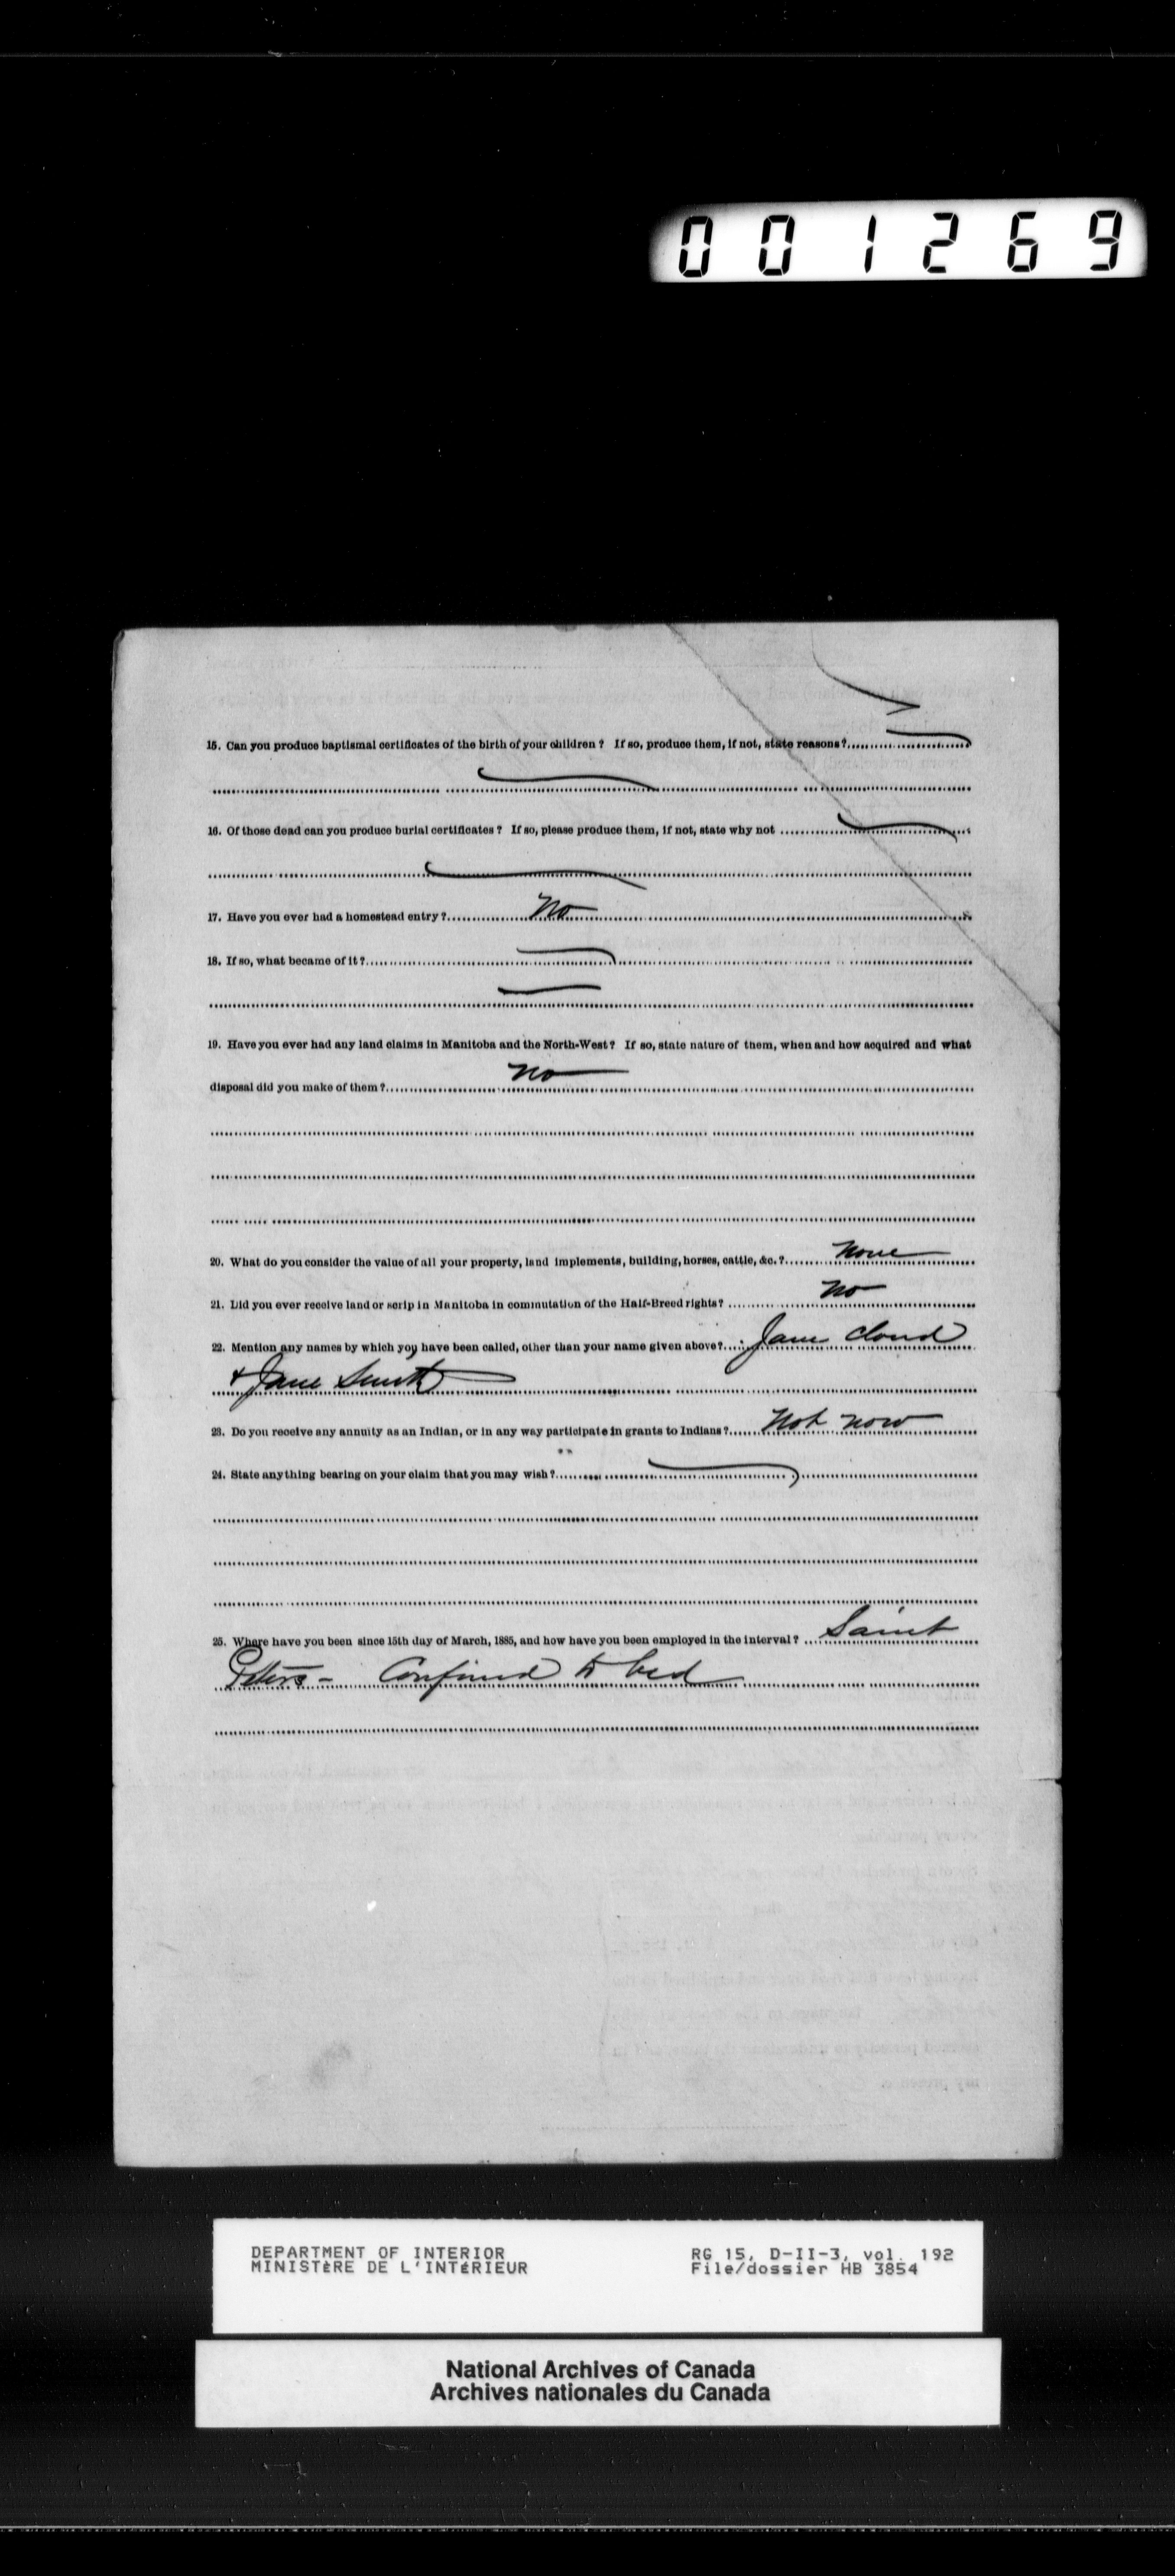 001269
15. Can you produce baptismal certificates of the birth of your children ? If so, produce them, if not, state reasons?
16. Of those dead can you produce burial certificates ? If so, please produce them, if not, state why not
17. Have you ever had a homestead entry? No
18. If so, what became of it?
19. Have you ever had any land claims in Manitoba and the North-West? If so, state nature of them, when and how acquired and what
disposal did you make of them? No
20. What do you consider the value of all your property, land implements, building, horses, cattle, &c.? None
21. Did you ever receive land or scrip in Manitoba in commutation of the Half-Breed rights? No
22. Mention any names by which you have been called, other than your name given above? Jane Cloud
+ Jane Smith
23. Do you receive any annuity as an Indian, or in any way participate in grants to Indians? Not now
24. State anything bearing on your claim that you may wish?
25. Where have you been since 15th day of March, 1885, and how have you been employed in the interval? Saint
Peters - Confined to bed
DEPARTMENT OF INTERIOR RG 15, D-II-3, vol. 192
MINISTÈRE DE L'INTÉRIEUR File/dossier HB 3854
National Archives of Canada
Archives nationales du Canada